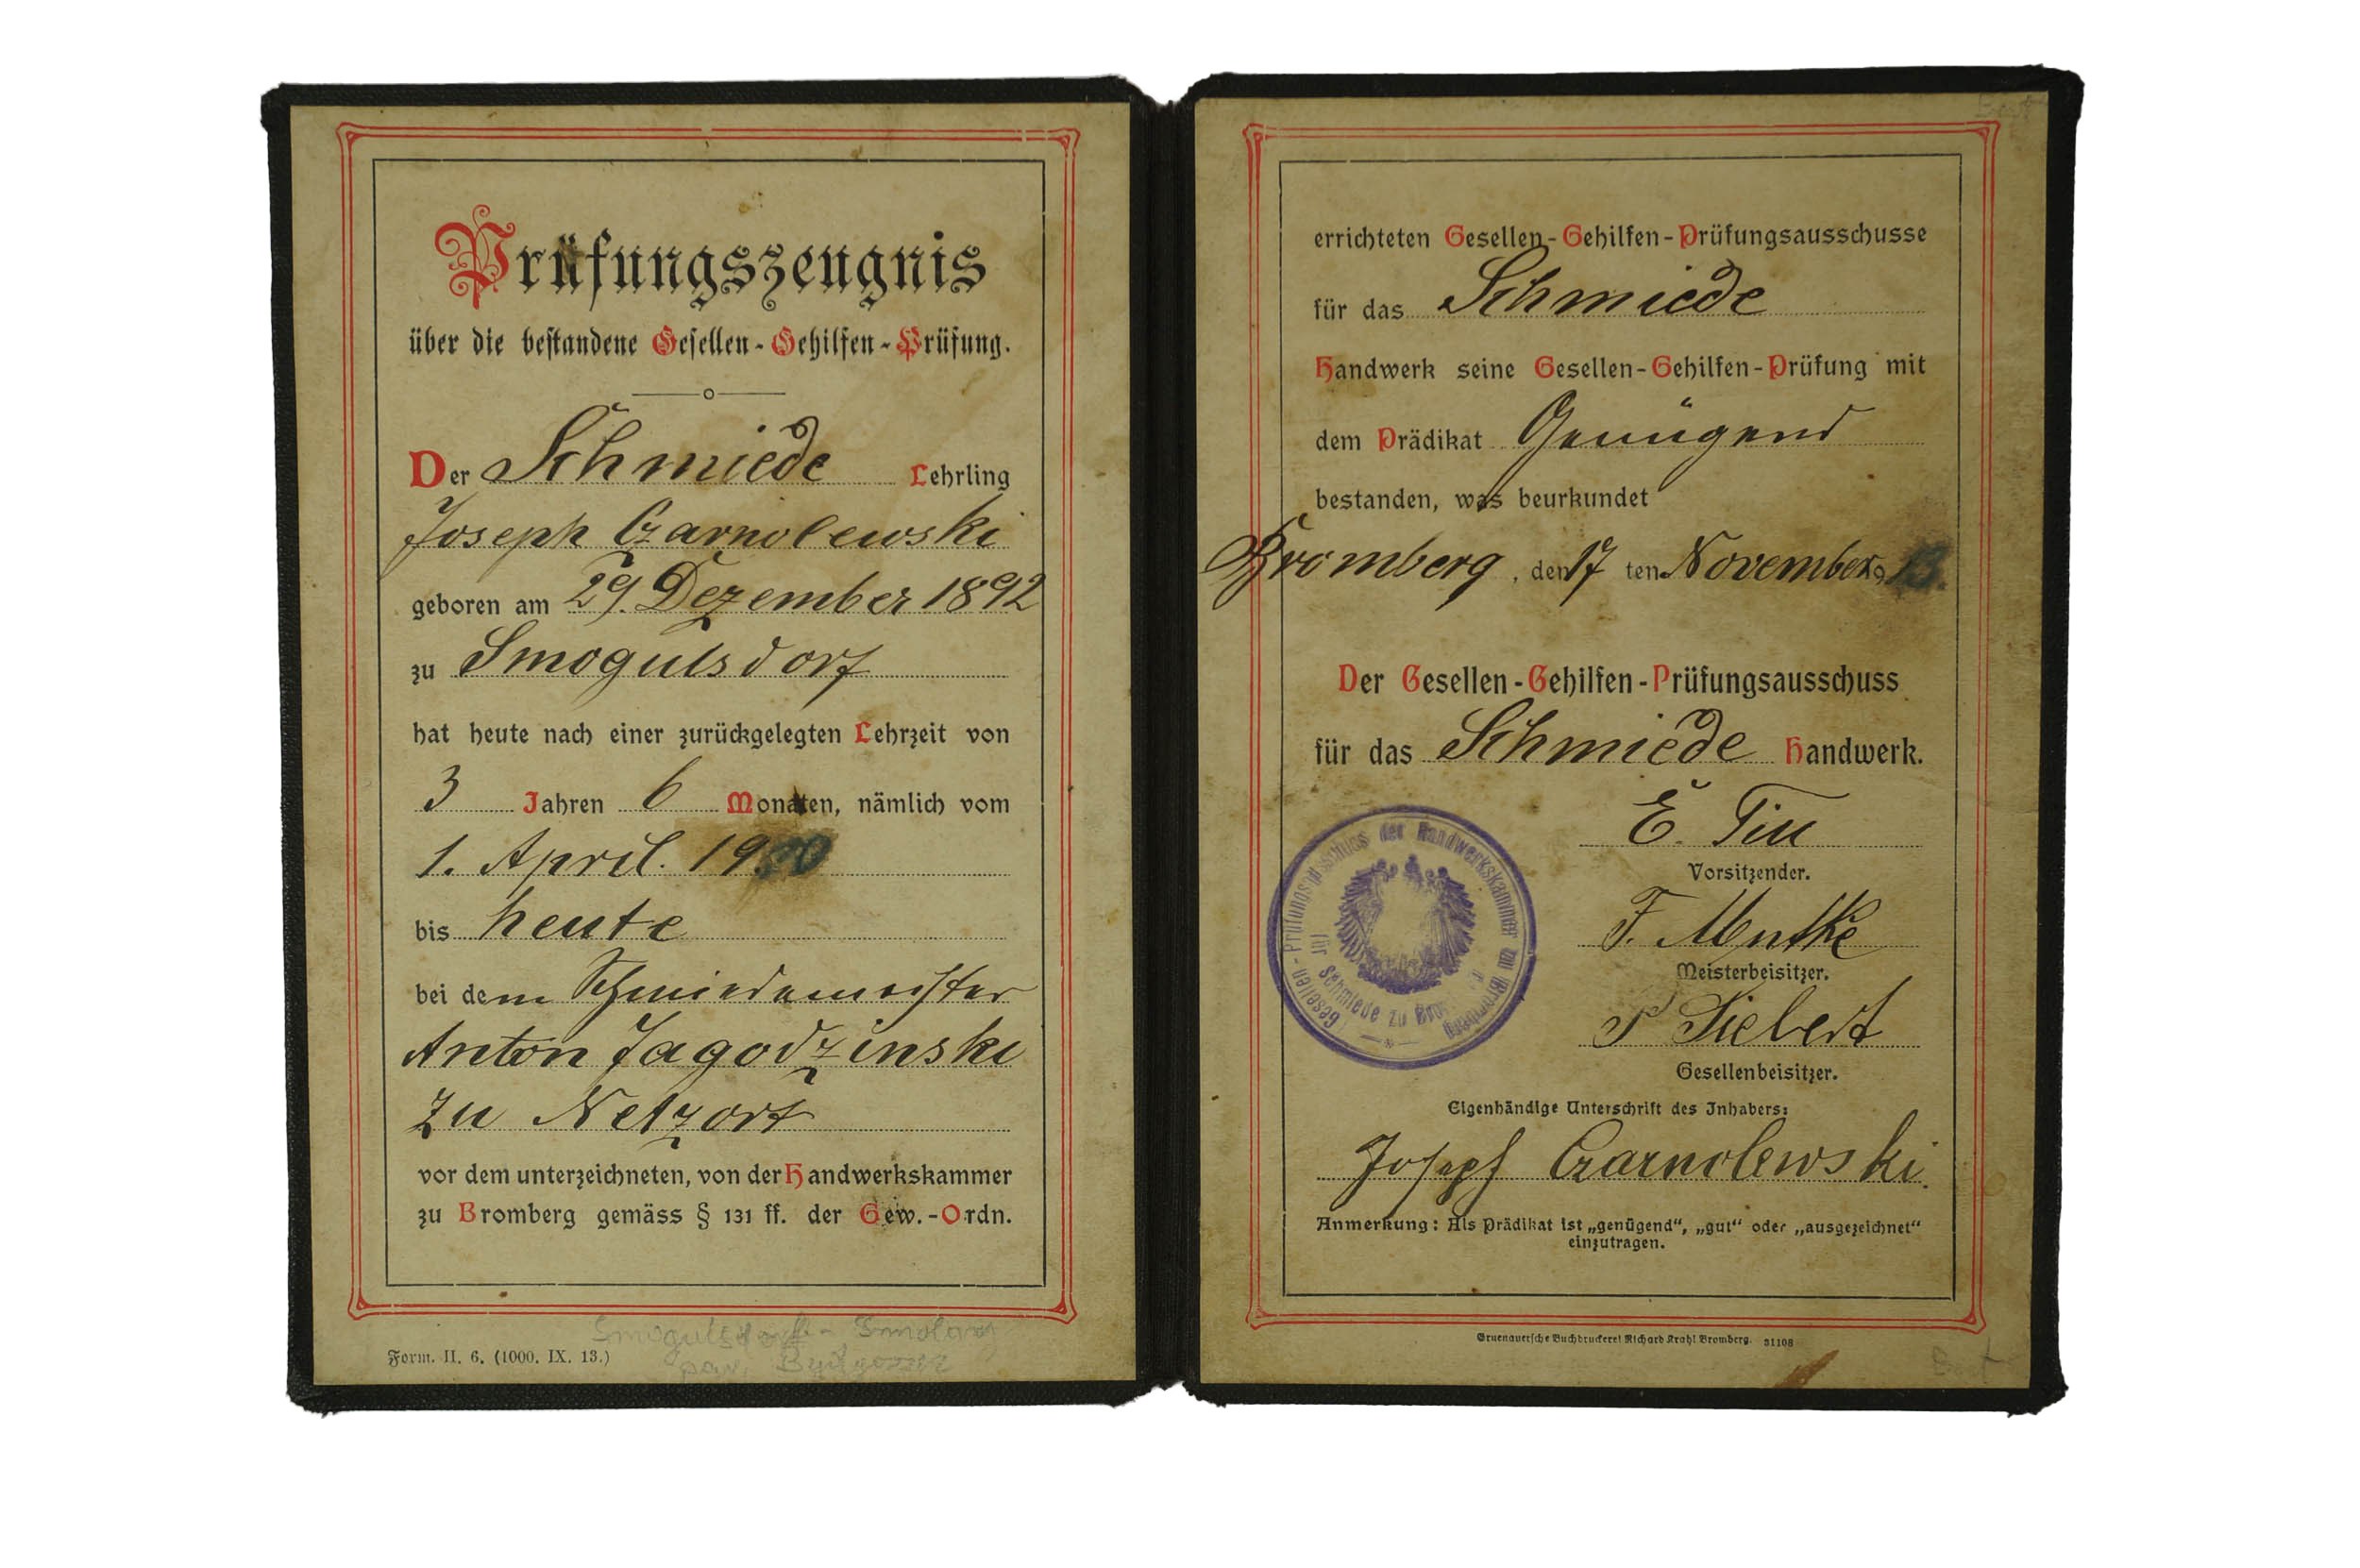 Prüfungszeugnis
über die bestandene Gesellen-Gehilfen-Prüfung.
Der Schmiede Lehrling
Joseph Czarnolewski
geboren am 29. Dezember 1892
zu Smogulsdorf
hat heute nach einer zurückgelegten Lehrzeit von
3 Jahren 6 Monaten, nämlich vom
1. April. 19
bis heute
bei dem Schmiedemeister
Anton Jagodzinski
zu Netzort
vor dem unterzeichneten, von der Handwerkskammer
zu Bromberg gemäss § 131 ff. der Gew.-Ordn.
Form. II. 6. (1000. IX. 13.)
Smogulsdorf -
pow. Bydgoszcz
errichteten Gesellen-Gehilfen-Prüfungsausschusse
für das Schmiede
Handwerk seine Gesellen-Gehilfen-Prüfung mit
dem Prädikat Genügend
bestanden, was beurkundet
Bromberg, den 17 ten November 1913.
Der Gesellen-Gehilfen-Prüfungsausschuss
für das Schmiede Handwerk.
E.
Vorsitzender.
F.
Meisterbeisitzer.
Siebert
Gesellenbeisitzer.
Gesellen-Prüfungsausschuss der Handwerkskammer zu Bromberg
für Schmiede zu
Eigenhändige Unterschrift des Inhabers:
Joseph Czarnolewski.
Anmerkung: Als Prädikat ist „genügend“, „gut“ oder „ausgezeichnet“
einzutragen.
Gruenauersche Buchdruckerei Richard Krahl Bromberg. 31108